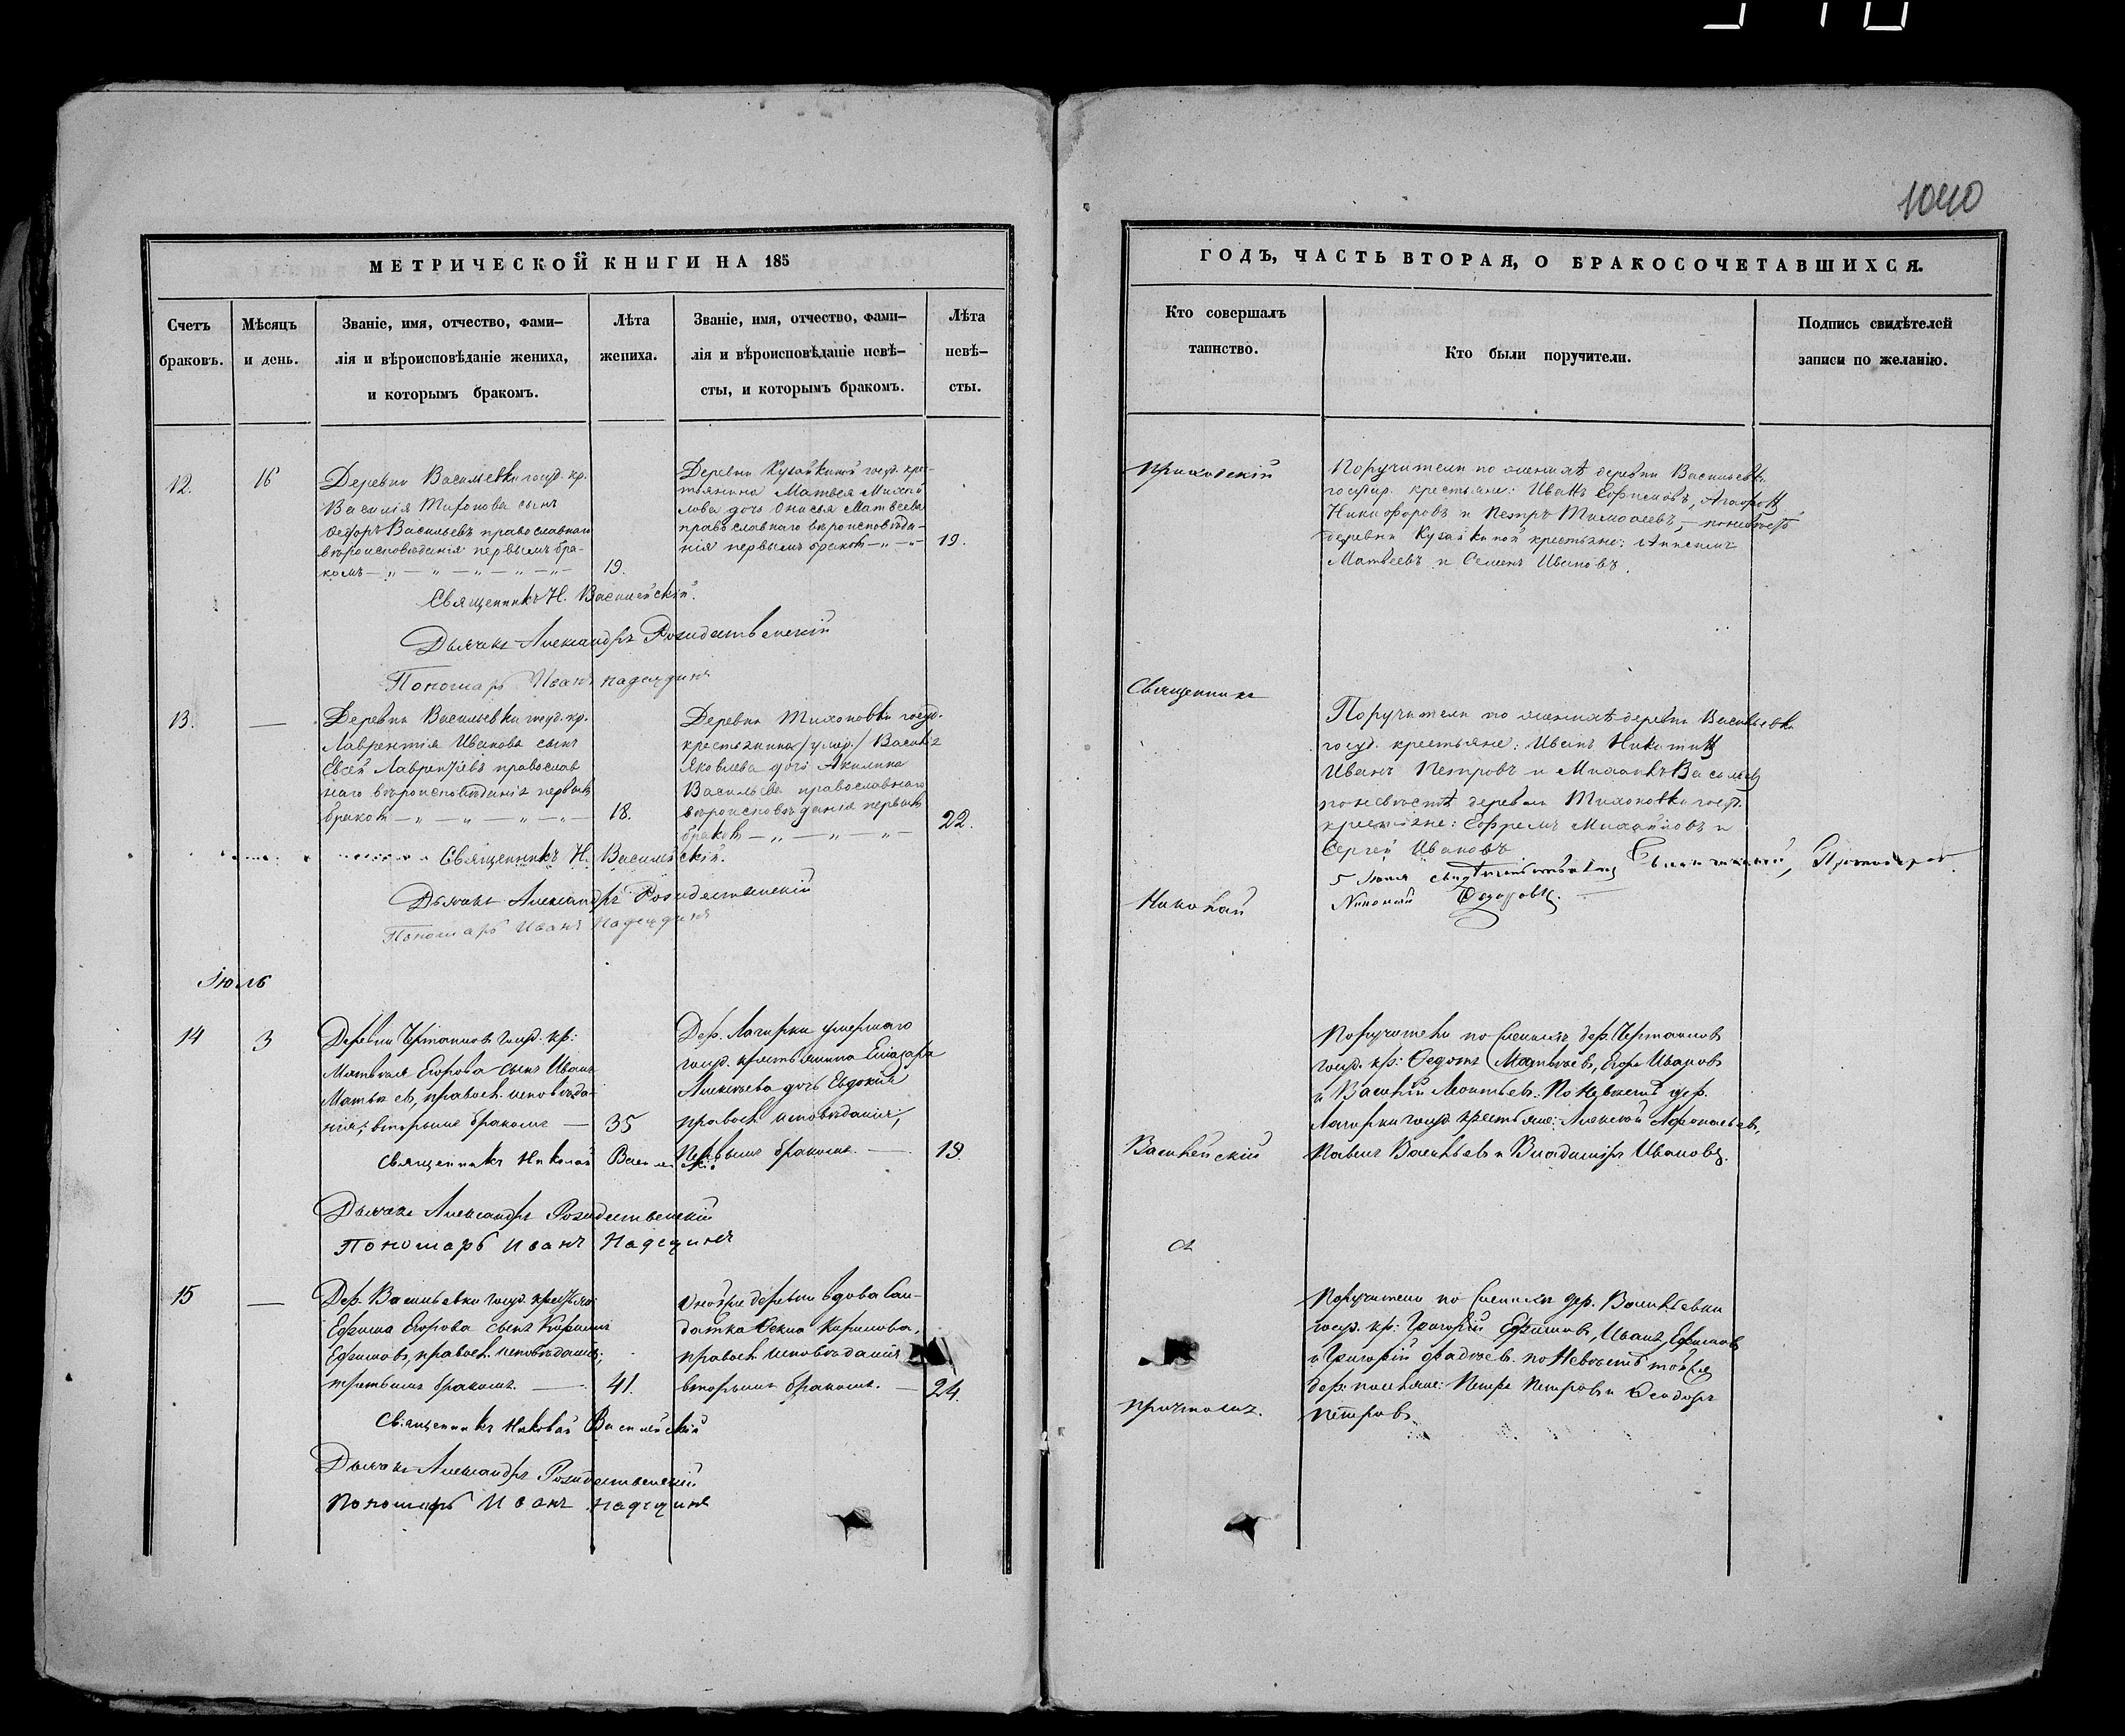 1040
МЕТРИЧЕСКОЙ КНИГИ НА 185
Счетъ браковъ.
Мѣсяцъ и день.
Званіе, имя, отчество, фами–
лія и вѣроисповѣданіе жениха,
и которымъ бракомъ.
Лѣта жениха.
Званіе, имя, отчество, фами–
лія и вѣроисповѣданіе невѣ–
сты, и которымъ бракомъ.
Лѣта невѣ–
сты.
12.
16
Деревни Васильевки госуд. кр.
Василія Миронова сынъ
Ѳедоръ Васильевъ православнаго
вѣроисповѣданія первымъ бра-
комъ
19.
Деревни Кузайкиной госуд. крес-
тьянина Матвея Михай
лова дочь Онисья Матвеева
православнаго вѣроисповѣда-
нія первымъ бракомъ
19.
Священникъ Н. Васильейскій.
Дьячекъ Александръ Рождественскій
Пономарь Иванъ Надеждинъ
13.
—
Деревни Васильевки госуд. кр.
Лаврентія Иванова сынъ
Евсей Лаврентьевъ православ
наго вѣроисповѣданія первымъ
бракомъ
18.
Деревни Тихоновки госуд.
крестьянина /умер./ Василія
Яковлева дочь Акилина
Васильева православнаго
вѣроисповѣданія первымъ
бракомъ
22.
Священникъ Н. Васильейскій.
Дьячекъ Александръ Рождественскій
Пономарь Иванъ Надеждинъ
Іюль
14
3
Деревни Чертановъ госуд. кр:
Матвѣя Егорова сынъ Иванъ
Матвѣевъ, правосл. исповѣда-
нія; вторымъ бракомъ —
35
Дер. Лагирки умершаго
госуд. крестьянина Елизара
Алексѣева дочь Евдокія
правосл. исповѣданія,
первымъ бракомъ. —
19.
Священникъ Николай Васильейскій
Дьячекъ Александръ Рождественскій
Пономарь Иванъ Надеждинъ
15
—
Дер. Васильевки госуд. крестьян.
Ефима Егорова сынъ
Ефимовъ, правосл. исповѣданія;
третьимъ бракомъ. —
41.
деревни вдова Сол-
датка Ѳекла Кирилова,
правосл. исповѣданія
вторымъ бракомъ. —
24.
Священникъ Николай Васильейскій
Дьячекъ Александръ Рождественскій
Пономарь Иванъ Надеждинъ
ГОДЪ, ЧАСТЬ ВТОРАЯ, О БРАКОСОЧЕТАВШИХСЯ.
Кто совершалъ
таинство.
Кто были поручители.
Подпись свидѣтелей
записи по желанію.
Приходскій
Поручители по женихѣ деревни Васильевки
государ. крестьяне: Иванъ Ефимовъ, Агафонъ
Никифоровъ и Петръ Тимофеевъ, — по невѣстѣ
деревни Кузайкиной крестьяне: Анисимъ
Матвеевъ и Семенъ Ивановъ.
Священникъ
Поручители по женихѣ деревни Васильевки
госуд. крестьяне: Иванъ Никитинъ
Иванъ Петровъ и Михаилъ Васильевъ
по невѣстѣ деревни Тихоновки госуд.
крестьяне: Ефремъ Михайловъ и
Сергей Ивановъ
5 Іюля свидѣтельствовалъ
Николай
Николай
Поручители по женихѣ дер. Чертановъ
госуд. кр: Ѳедотъ Матвѣевъ, Егоръ Ивановъ
и Василій Леонтьевъ. По невѣстѣ дер.
Лагирки госуд. крестьяне: Алексѣй Афонасьевъ,
Павелъ Васильевъ и Владиміръ Ивановъ.
Васильейскій
съ
причтомъ.
Поручители по женихѣ дер. Васильевки
госуд. кр: Григорій Ефимовъ, Иванъ Ефимовъ
и Григорій Фадѣевъ. По невѣстѣ той же
дер: Петръ Петровъ и Ѳеодоръ
Петровъ